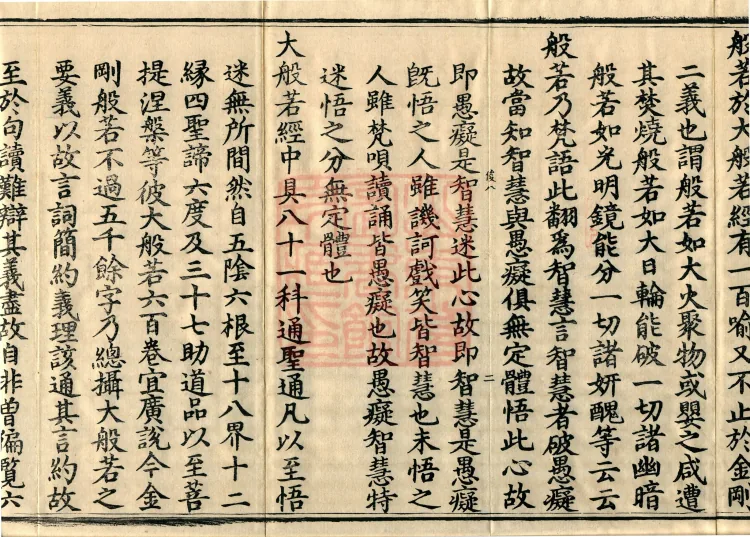 般若於大般若經有一百喻又不止於金剛
二義也謂般若如大火聚物或嬰之咸遭
其焚燒般若如大日輪能破一切諸幽暗
般若如光明鏡能分一切諸妍醜等云云
般若乃梵語此翻為智慧言智慧者破愚癡
故當知智慧與愚癡俱無定體悟此心故
即愚癡是智慧迷此心故即智慧是愚癡
既悟之人雖譏訶戲笑皆智慧也未悟之
人雖梵唄讀誦皆愚癡也故愚癡智慧特
迷悟之分無定體也
大般若經中具八十一科通聖通凡以至悟
迷無所間然自五陰六根至十八界十二
緣四聖諦六度及三十七助道品以至菩
提涅槃等彼大般若六百卷宜廣說今金
剛般若不過五千餘字乃總攝大般若之
要義以故言詞簡約義理該通其言約故
至於句讀難辯其義盡故自非曾徧覽六
二